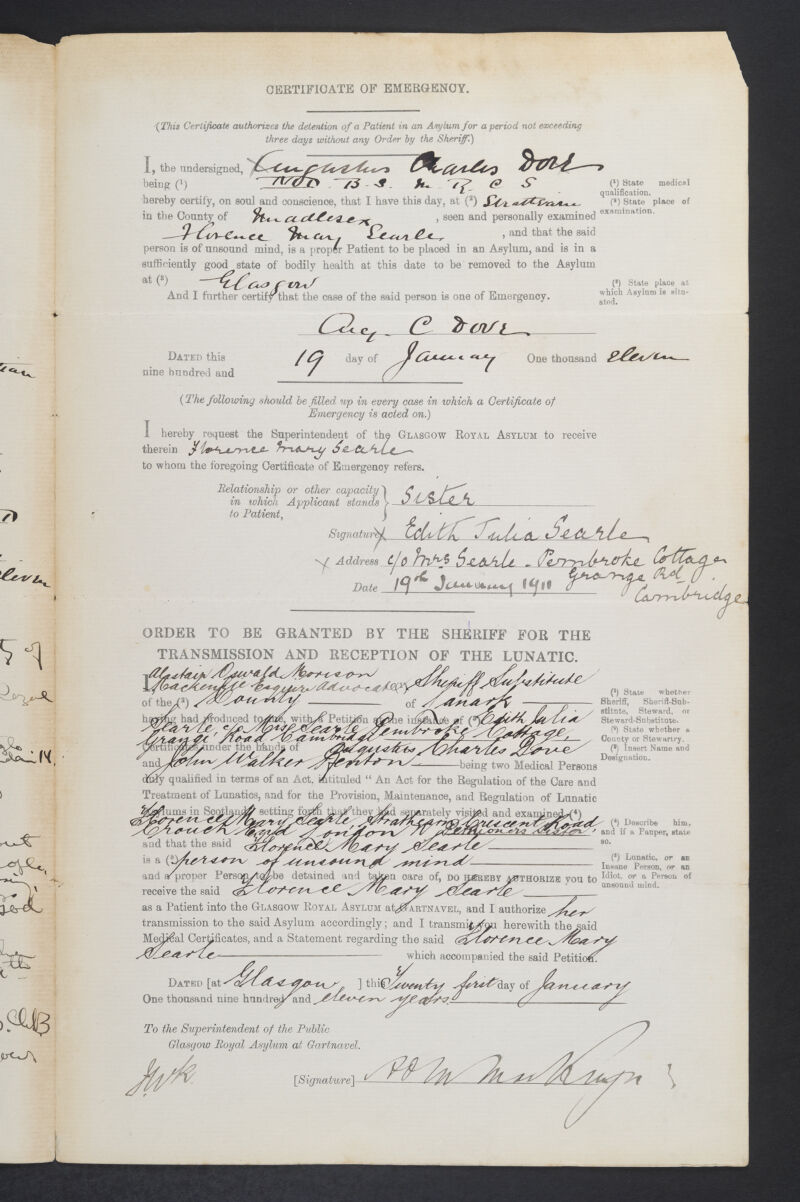 CERTIFICATE OF EMERGENCY.
(This Certificate authorizes the detention of a Patient in an Asylum for a period not exceeding
three days without any Order by the Sheriff.)
I, the undersigned, Augustus Charles Dove
being (¹) M.D. B. S. M. R. C S
hereby certify, on soul and conscience, that I have this day, at (²)
in the County of Middlesex, seen and personally examined
Florence Mary Searle, and that the said
person is of unsound mind, is a proper Patient to be placed in an Asylum, and is in a
sufficiently good state of bodily health at this date to be removed to the Asylum
at (³) Glasgow
And I further certify that the case of the said person is one of Emergency.
(¹) State medical
qualification.
(²) State place of
examination.
(³) State place at
which Asylum is situ-
ated.
Aug. C Dove
DATED this 19 day of January One thousand
nine hundred and eleven
(The following should be filled up in every case in which a Certificate of
Emergency is acted on.)
I hereby request the Superintendent of the GLASGOW ROYAL ASYLUM to receive
therein Florence Mary Searle
to whom the foregoing Certificate of Emergency refers.
Relationship or other capacity
in which Applicant stands
to Patient, } Sister
Signature x Edith Julia Searle
x Address c/o Mrs Searle - Pembroke Cottage
Grange Rd
Cambridge
Date 19th January 1911
ORDER TO BE GRANTED BY THE SHERIFF FOR THE
TRANSMISSION AND RECEPTION OF THE LUNATIC.
I, Alastair Oswald Morison
Mackenzie Esquire Advocate (¹) Sheriff Substitute
of the (²) County of Lanark
having had produced to me, with a Petition at the instance of (³) Edith Julia
Searle, c/o Mrs Searle Pembroke Cottage
Grange Road Cambridge
Certificates under the hands of Augustus Charles Dove
and John Walker Fenton being two Medical Persons
duly qualified in terms of an Act, intituled " An Act for the Regulation of the Care and
Treatment of Lunatics, and for the Provision, Maintenance, and Regulation of Lunatic
Asylums in Scotland, setting forth that they had separately visited and examined (⁴)
Florence Mary Searle, Crescent Road,
Crouch End London Petitioners Sister
and that the said Florence Mary Searle
is a (⁵) person of unsound mind
and a proper Person to be detained and taken care of, DO HEREBY AUTHORIZE you to
receive the said Florence Mary Searle
as a Patient into the GLASGOW ROYAL ASYLUM at GARTNAVEL, and I authorize her
transmission to the said Asylum accordingly; and I transmit you herewith the said
Medical Certificates, and a Statement regarding the said Florence Mary
Searle which accompanied the said Petition.
(¹) State whether
Sheriff, Sheriff-Sub-
stitute, Steward, or
Steward-Substitute.
(²) State whether a
County or Stewartry.
(³) Insert Name and
Designation.
(⁴) Describe him,
and if a Pauper, state
so.
(⁵) Lunatic, or an
Insane Person, or an
Idiot, or a Person of
unsound mind.
DATED [at Glasgow ] this Twenty first day of January
One thousand nine hundred and eleven years
To the Superintendent of the Public
Glasgow Royal Asylum at Gartnavel.
[Signature] A O M Mackenzie